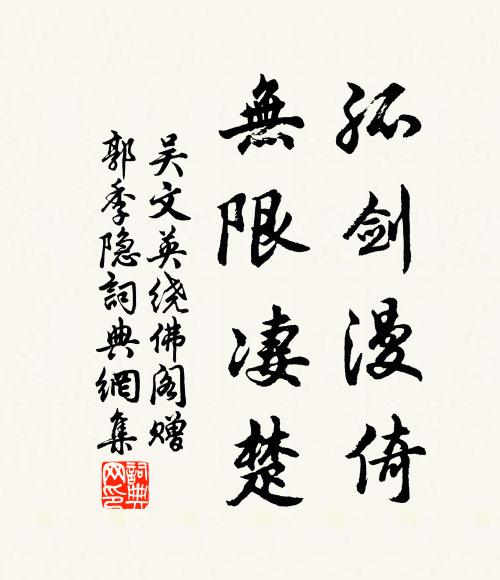 孤剑漫倚
無限凄楚
吴文英绕佛阁赠
郭季隐詞典網集
詞典
网印